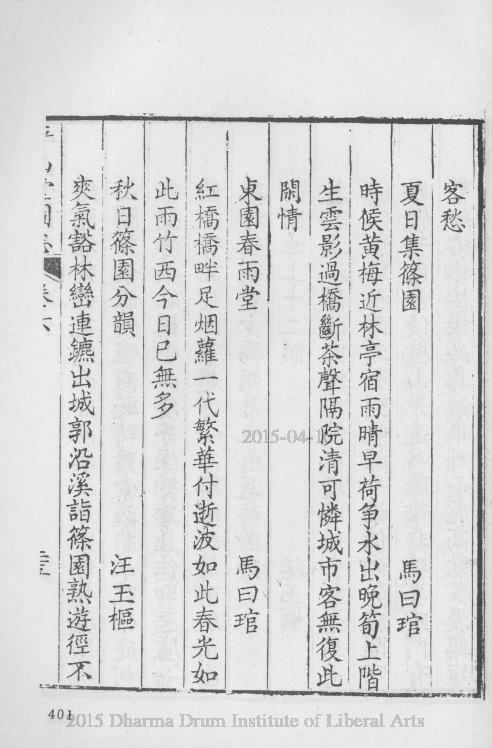 客愁
夏日集篠園 馬曰琯
時候黃梅近林亭宿雨晴早荷爭水出晚筍上階
生雲影過橋斷茶聲隔院清可憐城市客無復此
閒情
東園春雨堂 馬曰琯
紅橋橋畔足烟蘿一代繁華付逝波如此春光如
此雨竹西今日已無多
秋日篠園分韻 汪玉樞
爽氣豁林巒連鑣出城郭沿溪詣篠園熟遊徑不
卷六
401
2015-04-1
2015 Dharma Drum Institute of Liberal Arts